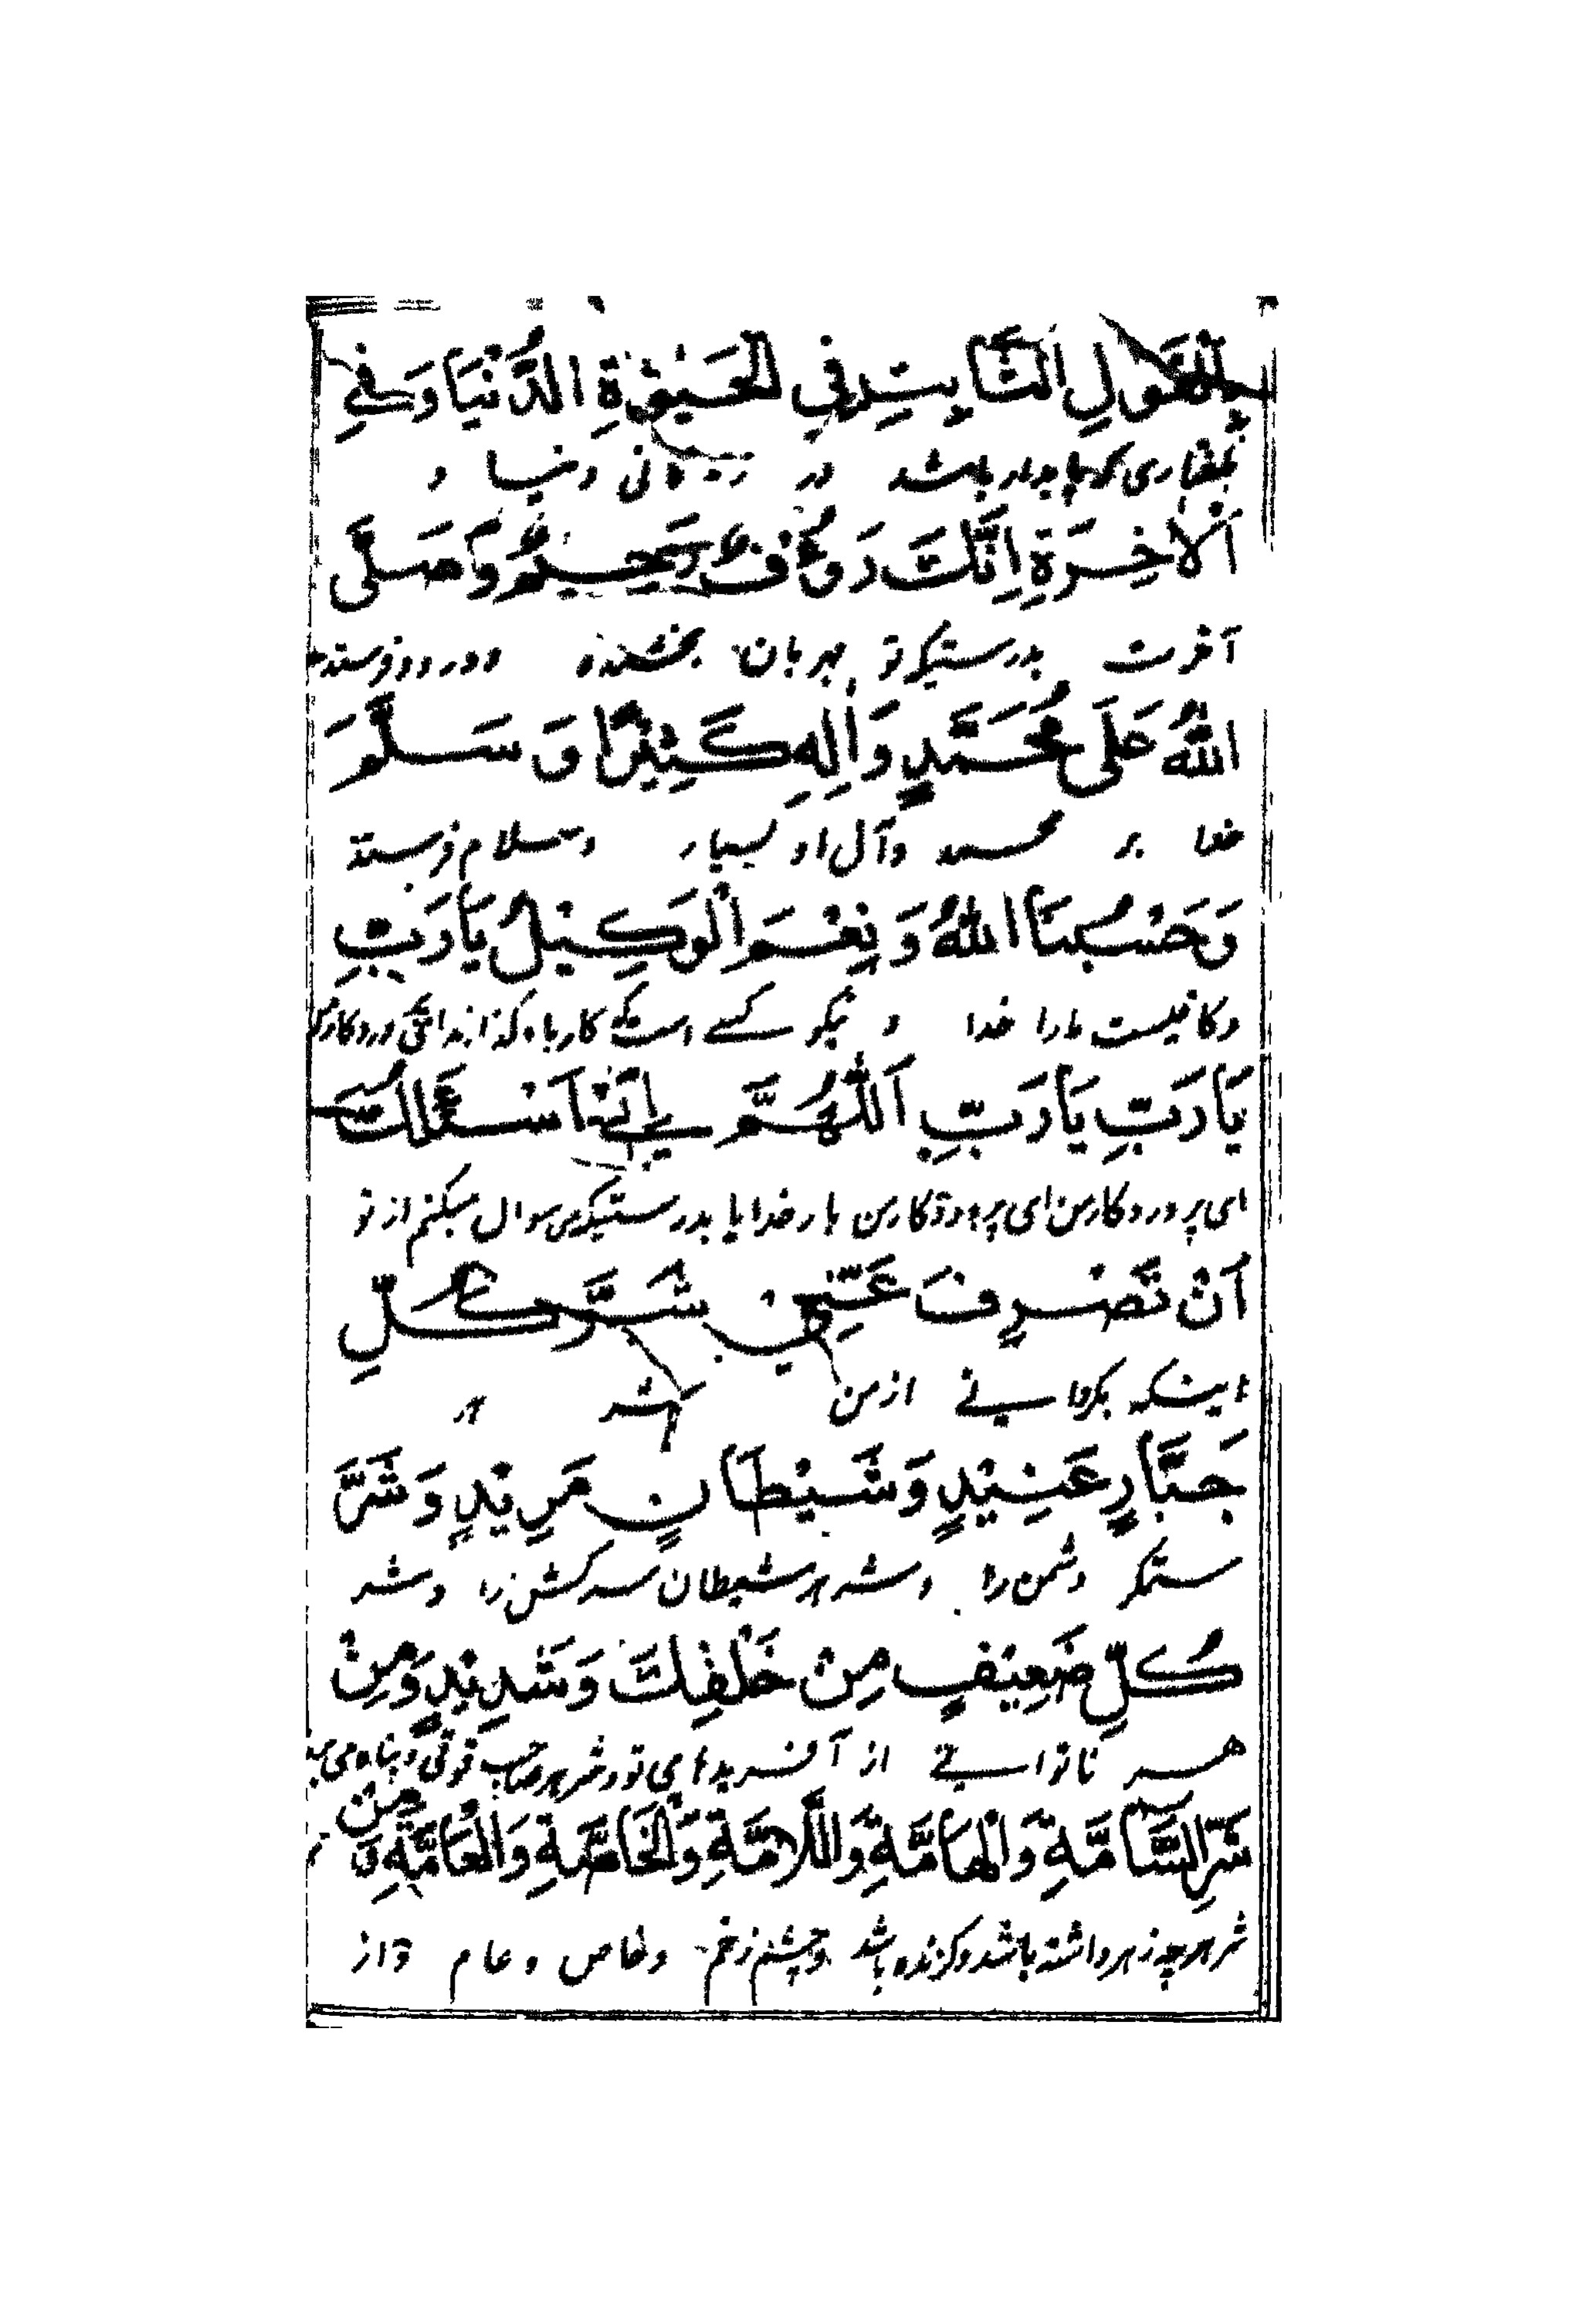 بِالْقَوْلِ الثَّابِتِ فِي الْحَيٰوةِ الدُّنْيَا وَفِي
بگفتاری که پایدار باشد در زندگانی دنیا و
اَلْاٰخِرَةِ اِنَّكَ رَؤُفٌ رَحِيْمٌ وَصَلَّى
آخرت بدرستیکه تو مهربان بخشنده و درود فرستد
اللّٰهُ عَلَى مُحَمَّدٍ وَاٰلِهِ كَثِيْرًا وَ سَلَّمَ
خدا بر محمد و آل او بسیار و سلام فرستد
وَحَسْبُنَا اللّٰهُ وَ نِعْمَ الْوَكِيْلُ يَا رَبِّ
و کافیست مارا خدا و نیکو کسے است که کار باو
يَا رَبِّ يَا رَبِّ اَللّٰهُمَّ اِنِّيْ اَسْئَلُكَ
ای پروردگار من ای پروردگار من بار خدایا بدرستیکه من سوال میکنم از تو
اَنْ تَصْرِفَ عَنِّيْ شَرَّ كُلِّ
اینکه بگردانے از من شر هر
جَبَّارٍ عَنِيْدٍ وَشَيْطَانٍ مَرِيْدٍ وَ شَرَّ
ستمگر دشمن را و شر هر شیطان سرکش را و شر
كُلِّ ضَعِيْفٍ مِنْ خَلْقِكَ وَشَدِيْدٍ وَمِنْ
هر ناتوانے از آفریدهای تو و شر هر صاحب قوتی و پناه می
شَرِّ السَّامَّةِ وَالْهَامَّةِ وَاللَّامَّةِ وَالْخَاصَّةِ وَالْعَامَّةِ وَ مِنْ
شر هر چه زهر داشته باشد و گزنده باشد و چشم زخم و خاص و عام و از